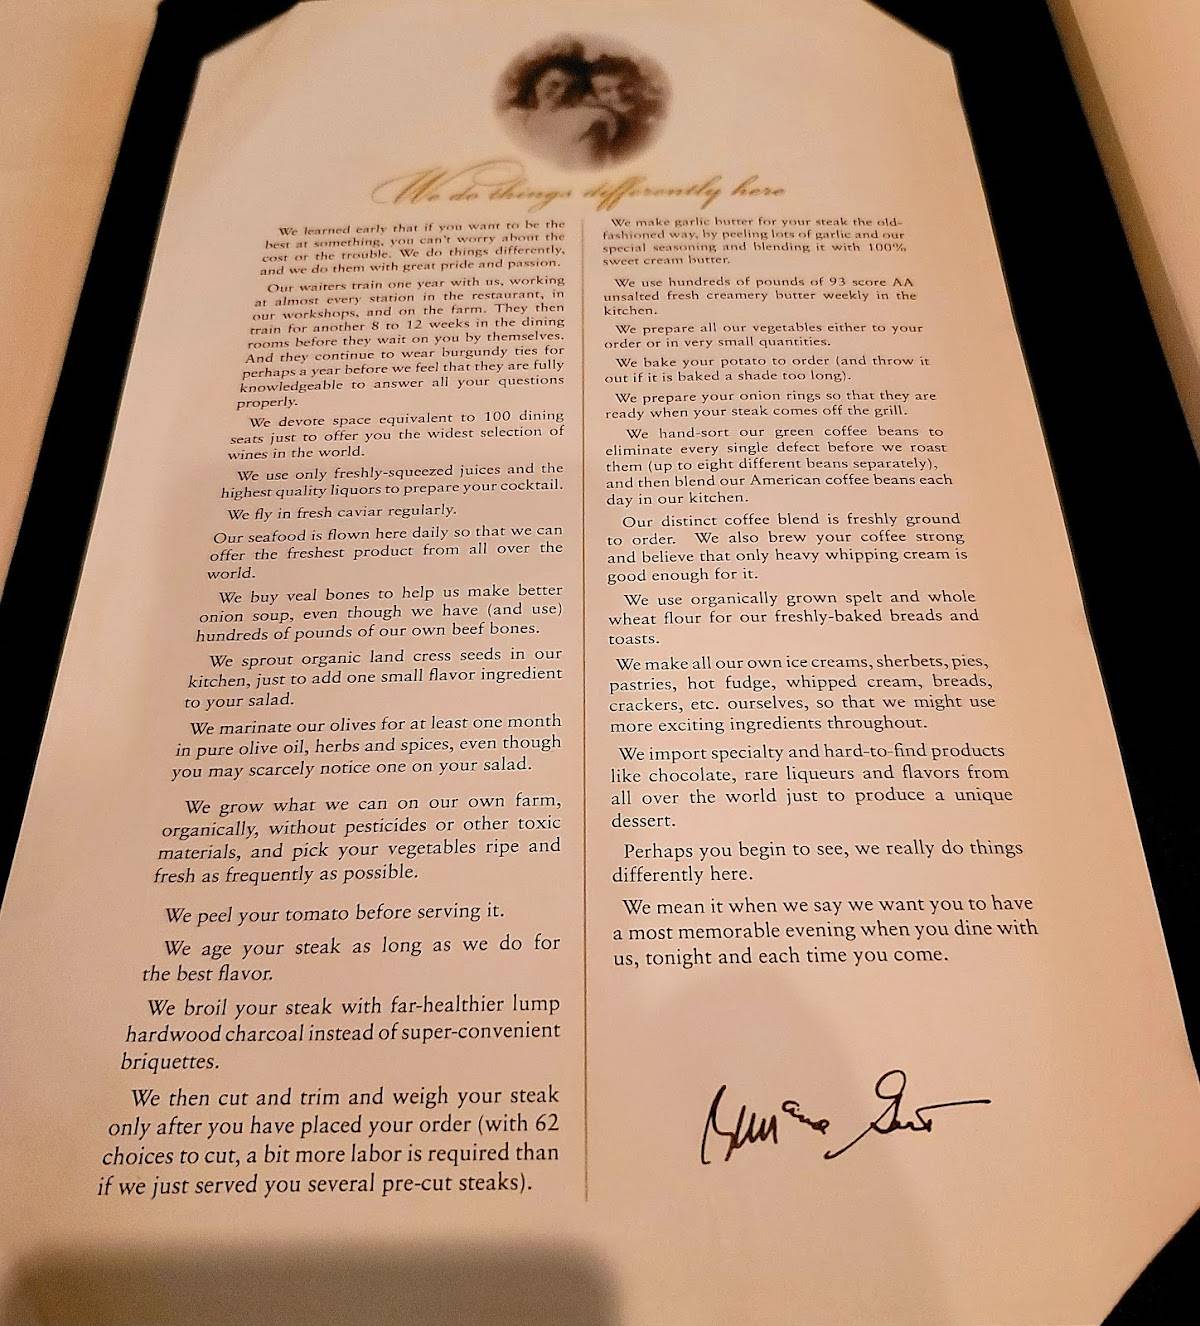 We do things differently here
We learned early that if you want to be the
best at something, you can't worry about the
cost or the trouble. We do things differently,
and we do them with great pride and passion.
Our waiters train one year with us, working
at almost every station in the restaurant, in
our workshops, and on the farm. They then
train for another 8 to 12 weeks in the dining
rooms before they wait on you by themselves.
And they continue to wear burgundy ties for
perhaps a year before we feel that they are fully
knowledgeable to answer all your questions
properly.
We devote space equivalent to 100 dining
seats just to offer you the widest selection of
wines in the world.
We use only freshly-squeezed juices and the
highest quality liquors to prepare your cocktail.
We fly in fresh caviar regularly.
Our seafood is flown here daily so that we can
offer the freshest product from all over the
world.
We buy veal bones to help us make better
onion soup, even though we have (and use)
hundreds of pounds of our own beef bones.
We sprout organic land cress seeds in our
kitchen, just to add one small flavor ingredient
to your salad.
We marinate our olives for at least one month
in pure olive oil, herbs and spices, even though
you may scarcely notice one on your salad.
We grow what we can on our own farm,
organically, without pesticides or other toxic
materials, and pick your vegetables ripe and
fresh as frequently as possible.
We peel your tomato before serving it.
We age your steak as long as we do for
the best flavor.
We broil your steak with far-healthier lump
hardwood charcoal instead of super-convenient
briquettes.
We then cut and trim and weigh your steak
only after you have placed your order (with 62
choices to cut, a bit more labor is required than
if we just served you several pre-cut steaks).
We make garlic butter for your steak the old-
fashioned way, by peeling lots of garlic and our
special seasoning and blending it with 100%
sweet cream butter.
We use hundreds of pounds of 93 score AA
unsalted fresh creamery butter weekly in the
kitchen.
We prepare all our vegetables either to your
order or in very small quantities.
We bake your potato to order (and throw it
out if it is baked a shade too long).
We prepare your onion rings so that they are
ready when your steak comes off the grill.
We hand-sort our green coffee beans to
eliminate every single defect before we roast
them (up to eight different beans separately),
and then blend our American coffee beans each
day in our kitchen.
Our distinct coffee blend is freshly ground
to order. We also brew your coffee strong
and believe that only heavy whipping cream is
good enough for it.
We use organically grown spelt and whole
wheat flour for our freshly-baked breads and
toasts.
We make all our own ice creams, sherbets, pies,
pastries, hot fudge, whipped cream, breads,
crackers, etc. ourselves, so that we might use
more exciting ingredients throughout.
We import specialty and hard-to-find products
like chocolate, rare liqueurs and flavors from
all over the world just to produce a unique
dessert.
Perhaps you begin to see, we really do things
differently here.
We mean it when we say we want you to have
a most memorable evening when you dine with
us, tonight and each time you come.